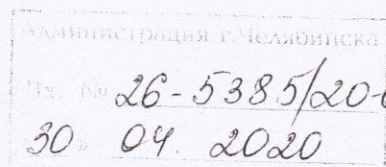 Администрация г. Челябинска
Вх. № 26-5385/20-
30 » 04 2020